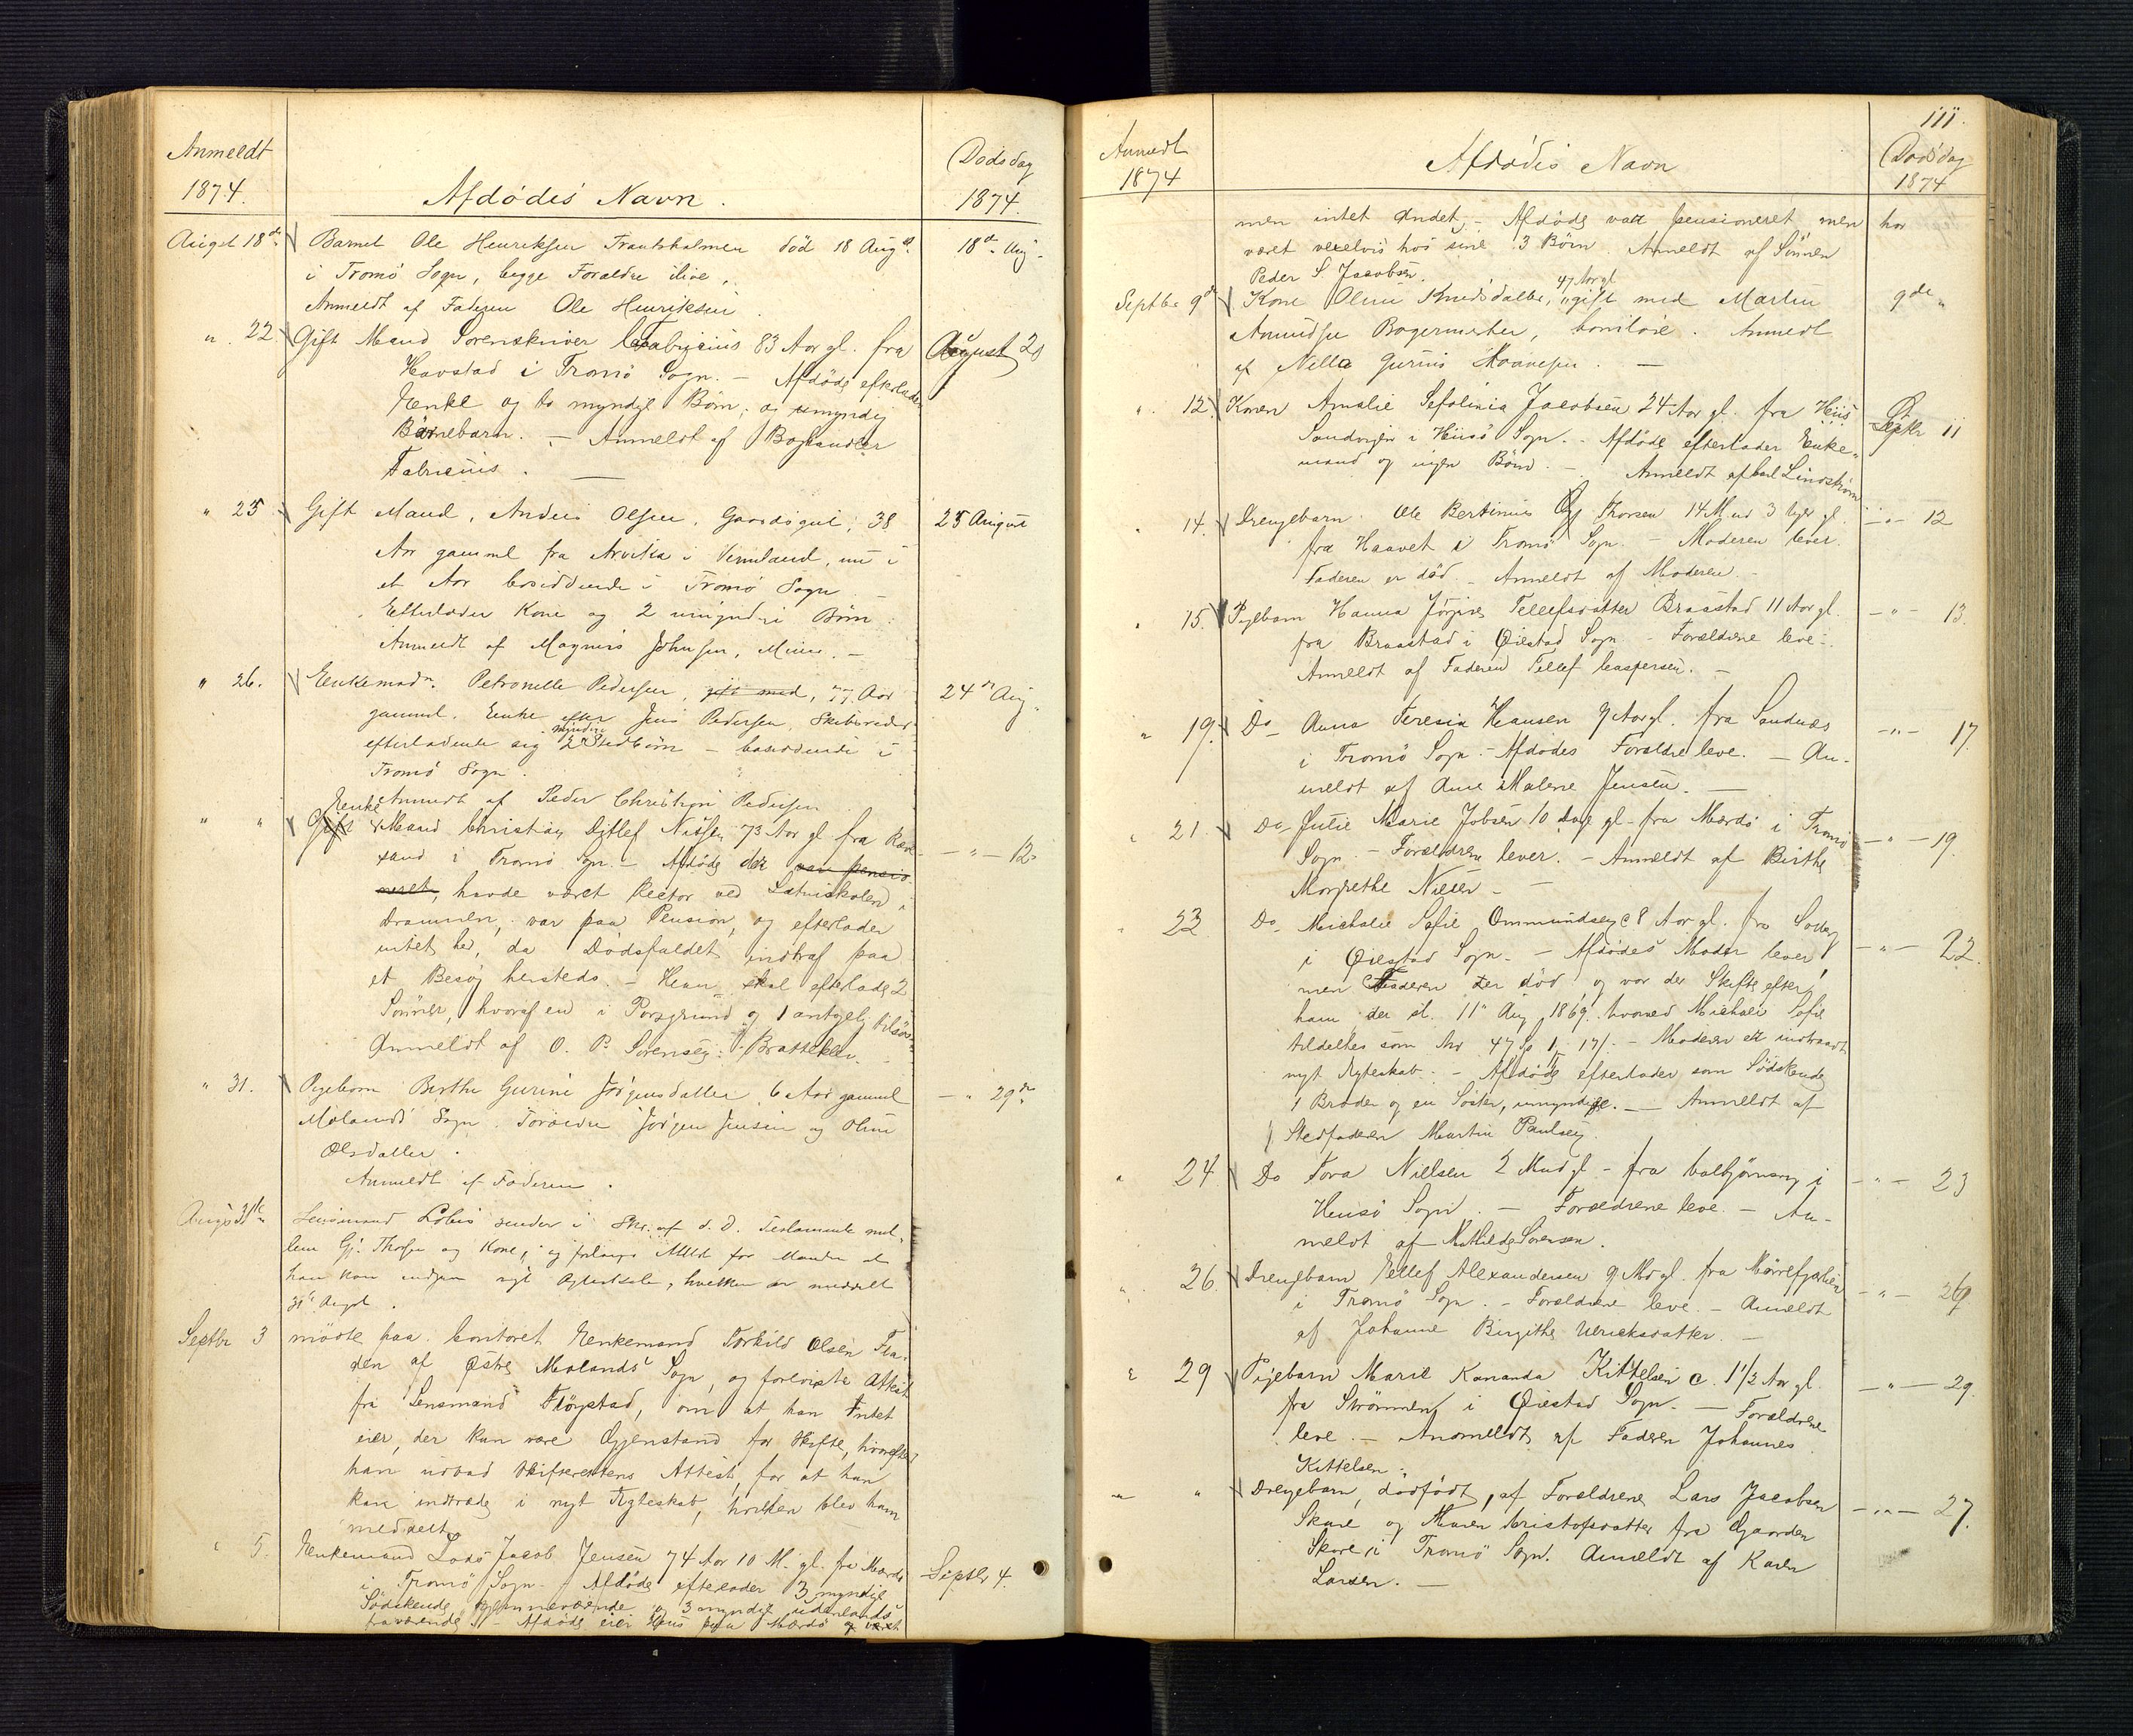 Anmeldt
1874.
Afdödes Navn.
Dödsdag
1874.
August 18de Barnet Ole Henriksen død 18 Augst 18de Aug.
i Tromö Sogn, begge Forældre ilive,
Anmeldt af Faderen Ole Henriksen
" 22. Gift Mand Sorenskriver Fabricius 83 Aar gl. fra August 20
Havstad i Tromö Sogn. - Afdöde efterlader
Enke og to myndige Børn, og umyndig
Barnebarn. - Anmeldt af Boghandler
Fabricius.
" 25 Gift Mand, Anders Olsen, Gaardsgut, 38 25 August
Aar gammel fra Arvika i Vermland, nu i
et Aar bosiddende i Tromö Sogn
Efterlader Kone og 2 umyndige Börn
Anmeldt af Magnus Johnsen,
" 26. Enkemadm. Petronelle Pedersen, gift med, 77 Aar 24de Aug.
gammel. Enke efter Jens Pedersen, Skibsreder
efterladende sig 2 myndige Stedbörn - bosiddende i
Tromö Sogn.
Anmeldt af Peder Christian Pedersen
" " Gift Enke Mand Christian Ditlef Nissen 73 Aar gl. fra - " - 12
sand i Tromö Sogn. - Afdöde der var pensio
neret, havde været Rector ved Latinskolen i
Drammen, var paa Pension, og efterlader
intet her, da Dödsfaldet indtraf paa
et Besög hersteds. - Han skal efterlade 2
Sönner, hvoraf en i Porsgrund og 1 antagelig tilsöes
Anmeldt af O. P. Sörensen Bratteklev.
" 31. Pigebarn Birthe Gurine Jörgensdatter 6 Aar gammel - " 29de
Molands Sogn. Forældre Jörgen Jensen og Oline
Olsdatter.
Anmeldt af Faderen.
August 31te Lensmand sender i Skr. af d. D. Testamente mel-
lem Gj. Thorsen og Kone, og forlangt Attest for Manden at
han kan indgaa nyt Ægteskab, hvilken er meddelt
31te Augst.
Septbr 3 mödte paa Contoret Enkemand Torkild Olsen Fla-
den af Östre Molands Sogn, og foreviste Attest
fra Lensmand Flöystad, om at han Intet
eier, der kan være Gjenstand for Skifte, hvorefter
han udbad Skifterettens Attest, for at han
kan indtræde i nyt Ægteskab, hvilken blev ham
meddelt
" 5. Enkemand Lods Jacob Jensen 74 Aar 10 M. gl. fra Mærdö Septbr 4.
i Tromö Sogn. - Afdöde efterlader 3 myndige
Södskende hjemmeværende og 3 myndige udenlands
fraværende. - Afdöde eier Huus paa Mærdö og været
111.
Anmeldt
1874
Afdödes Navn
Dödsdag
1874
men intet Andet. - Afdöde var pensioneret men har
været vexelvis hos sine 3 Börn. Anmeldt af Sönnen
Peder S. Jacobsen.
Septbr 9de Kone Oline Knudsdatter, 47 Aar gl. gift med Martin 9de "
Amundsen Bagermester, barnlöse. Anmeldt
af Nille Gurine Haavesen.
" 12 Konen Amalie Sefolinia Jacobsen 24 Aar gl. fra Hiis Septbr 11
Sandvigen i Hiisö Sogn. - Afdöde efterlader Enke-
mand og ingen Börn. - Anmeldt af Carl Lindström
" 14. Drengebarn Ole Bertinius Thorsen 14 M. og 3 Uger gl. - " - 12
fra Haavet i Tromö Sogn. - Moderen lever.
Faderen er död. - Anmeldt af Moderen. -
" 15. Pigebarn Hanna Jörgine Tellefsdatter Braastad 11 Aar gl. - " - 13.
fra Braastad i Öiestad Sogn. - Forældrene leve. -
Anmeldt af Faderen Tellef Caspersen. -
" 19. Do Anna Teresia Hansen 9 Aar gl. fra Sandnæs - " - 17.
i Tromö Sogn. - Afdödes Forældre leve. - An-
meldt af Ane Malene Jensen. -
" 21. Do Julie Marie Jobsen 10 Dage gl. fra Mærdö i Tromö - " - 19.
Sogn. - Forældrene lever. - Anmeldt af Birthe
Margrethe Nielsen -
" 22. Do Michalie Sofie Ommundsen c 8 Aar gl. fra - " - 22.
i Öiestad Sogn. - Afdödes Moder lever
men Faderen er död, og var der Skifte efter
ham der sl. 11te Aug. 1869. hvorved Michalie Sofie
tildeltes som Arv 47 Sp 1 17/. - Moderen er indtraadt
nyt Ægteskab. - Afdöde efterlader som Södskende
1 Broder og en Söster, umyndige. - Anmeldt af
Stedfaderen Martin Paulsen.
" 24 Do Tora Nielsen 2 Mnd gl. - fra i - " - 23
Hiisö Sogn. - Forældrene leve. - An-
meldt af Mathilde Sörensen.
" 26. Drengebarn Tellef Alexandersen 9 Md gl. fra Mörrefjær - " - 26
i Tromö Sogn. - Forældrene leve. - Anmeldt
af Johanne Birgithe Ulriksdatter. -
" 29 Pigebarn Marie Kananda Kittelsen c. 1 1/2 Aar gl. - " - 29.
fra Strömmen i Öiestad Sogn. - Forældrene
leve. - Anmeldt af Faderen Johannes
Kittelsen.
" " Drengebarn, dödfödt, af Forældrene Lars Jacobsen - " - 27.
Skare og Maren Kristofsdatter fra Gaarden
Skare i Tromö Sogn. Anmeldt af Karen
Larsen. -